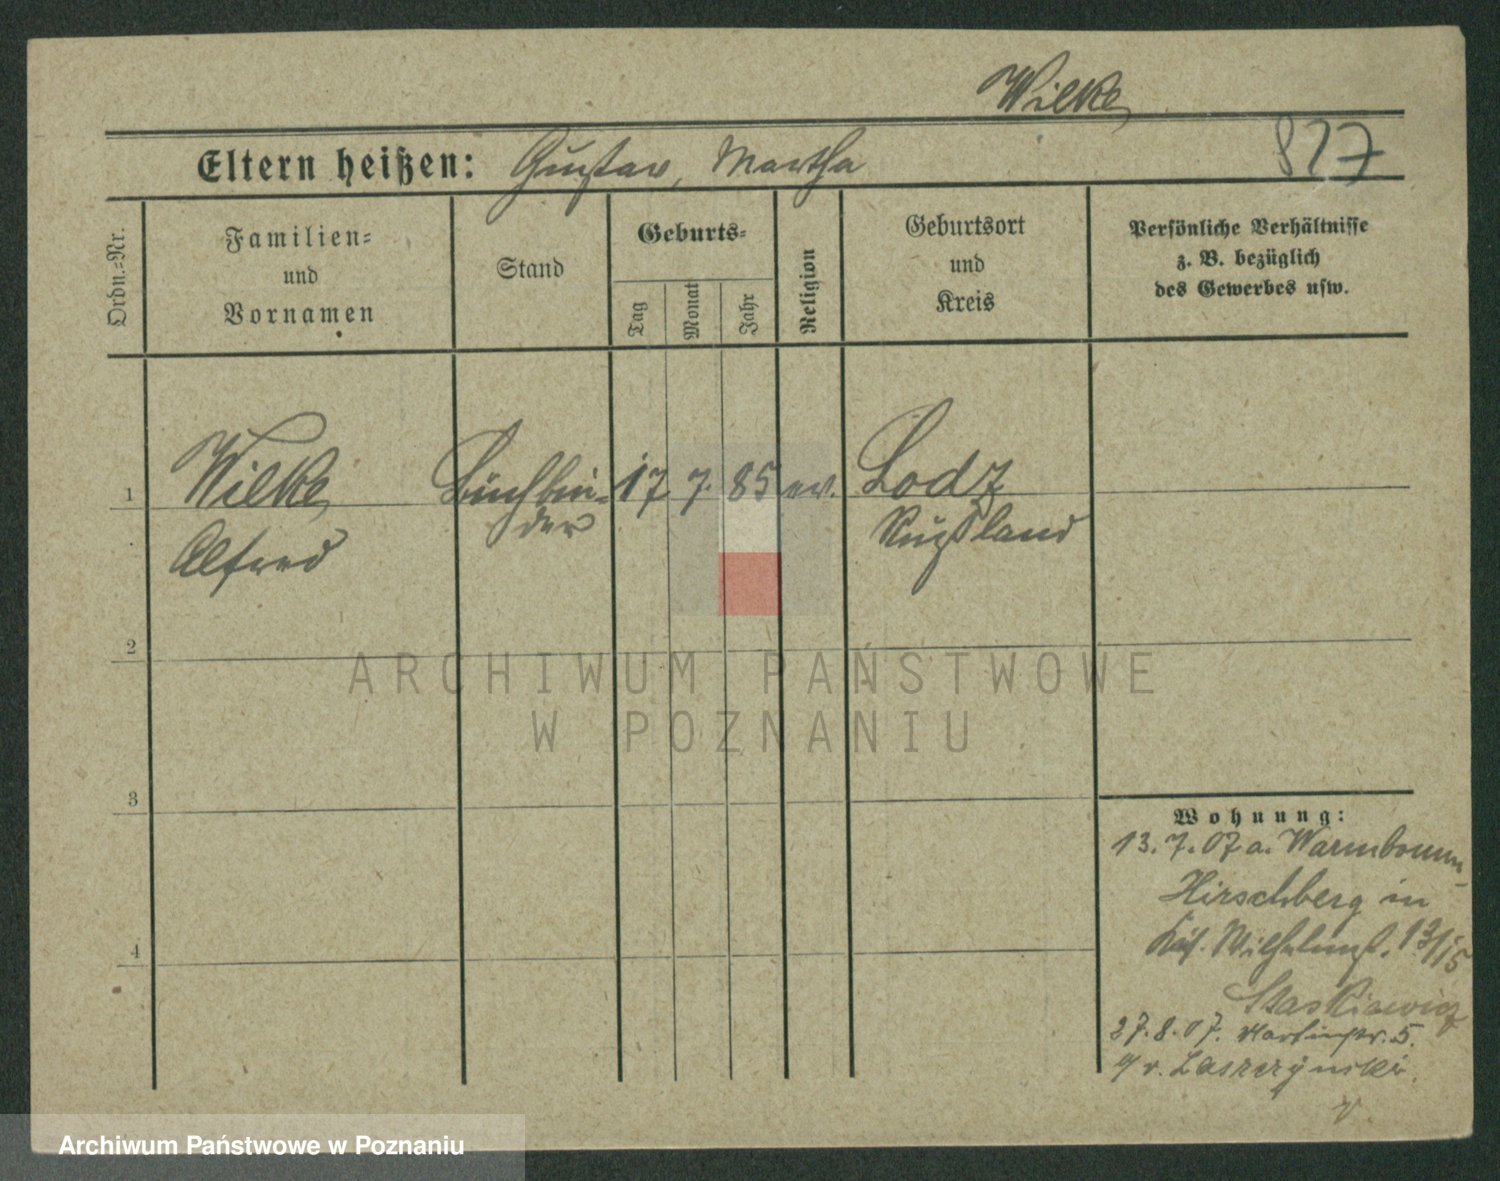 Wilke
827
Eltern heißen: Gustav, Martha
Ordn.=Nr.
Familien=
und
Vornamen
Stand
Geburts=
Tag
Monat
Jahr
Religion
Geburtsort
und
Kreis
Persönliche Verhältnisse
z. B. bezüglich
des Gewerbes usw.
1
Wilke
Alfred
Buchbin=
der
17
7.
85
ev.
Lodz
Rußland
2
3
4
Wohnung:
13.7.07 a. Warmbrunn
Hirschberg in
Wilhelmst. 13/15
Staskiewicz
27.8.07. Martinstr. 5.
v. Laszczynski
ARCHIWUM PAŃSTWOWE
W POZNANIU
Archiwum Państwowe w Poznaniu